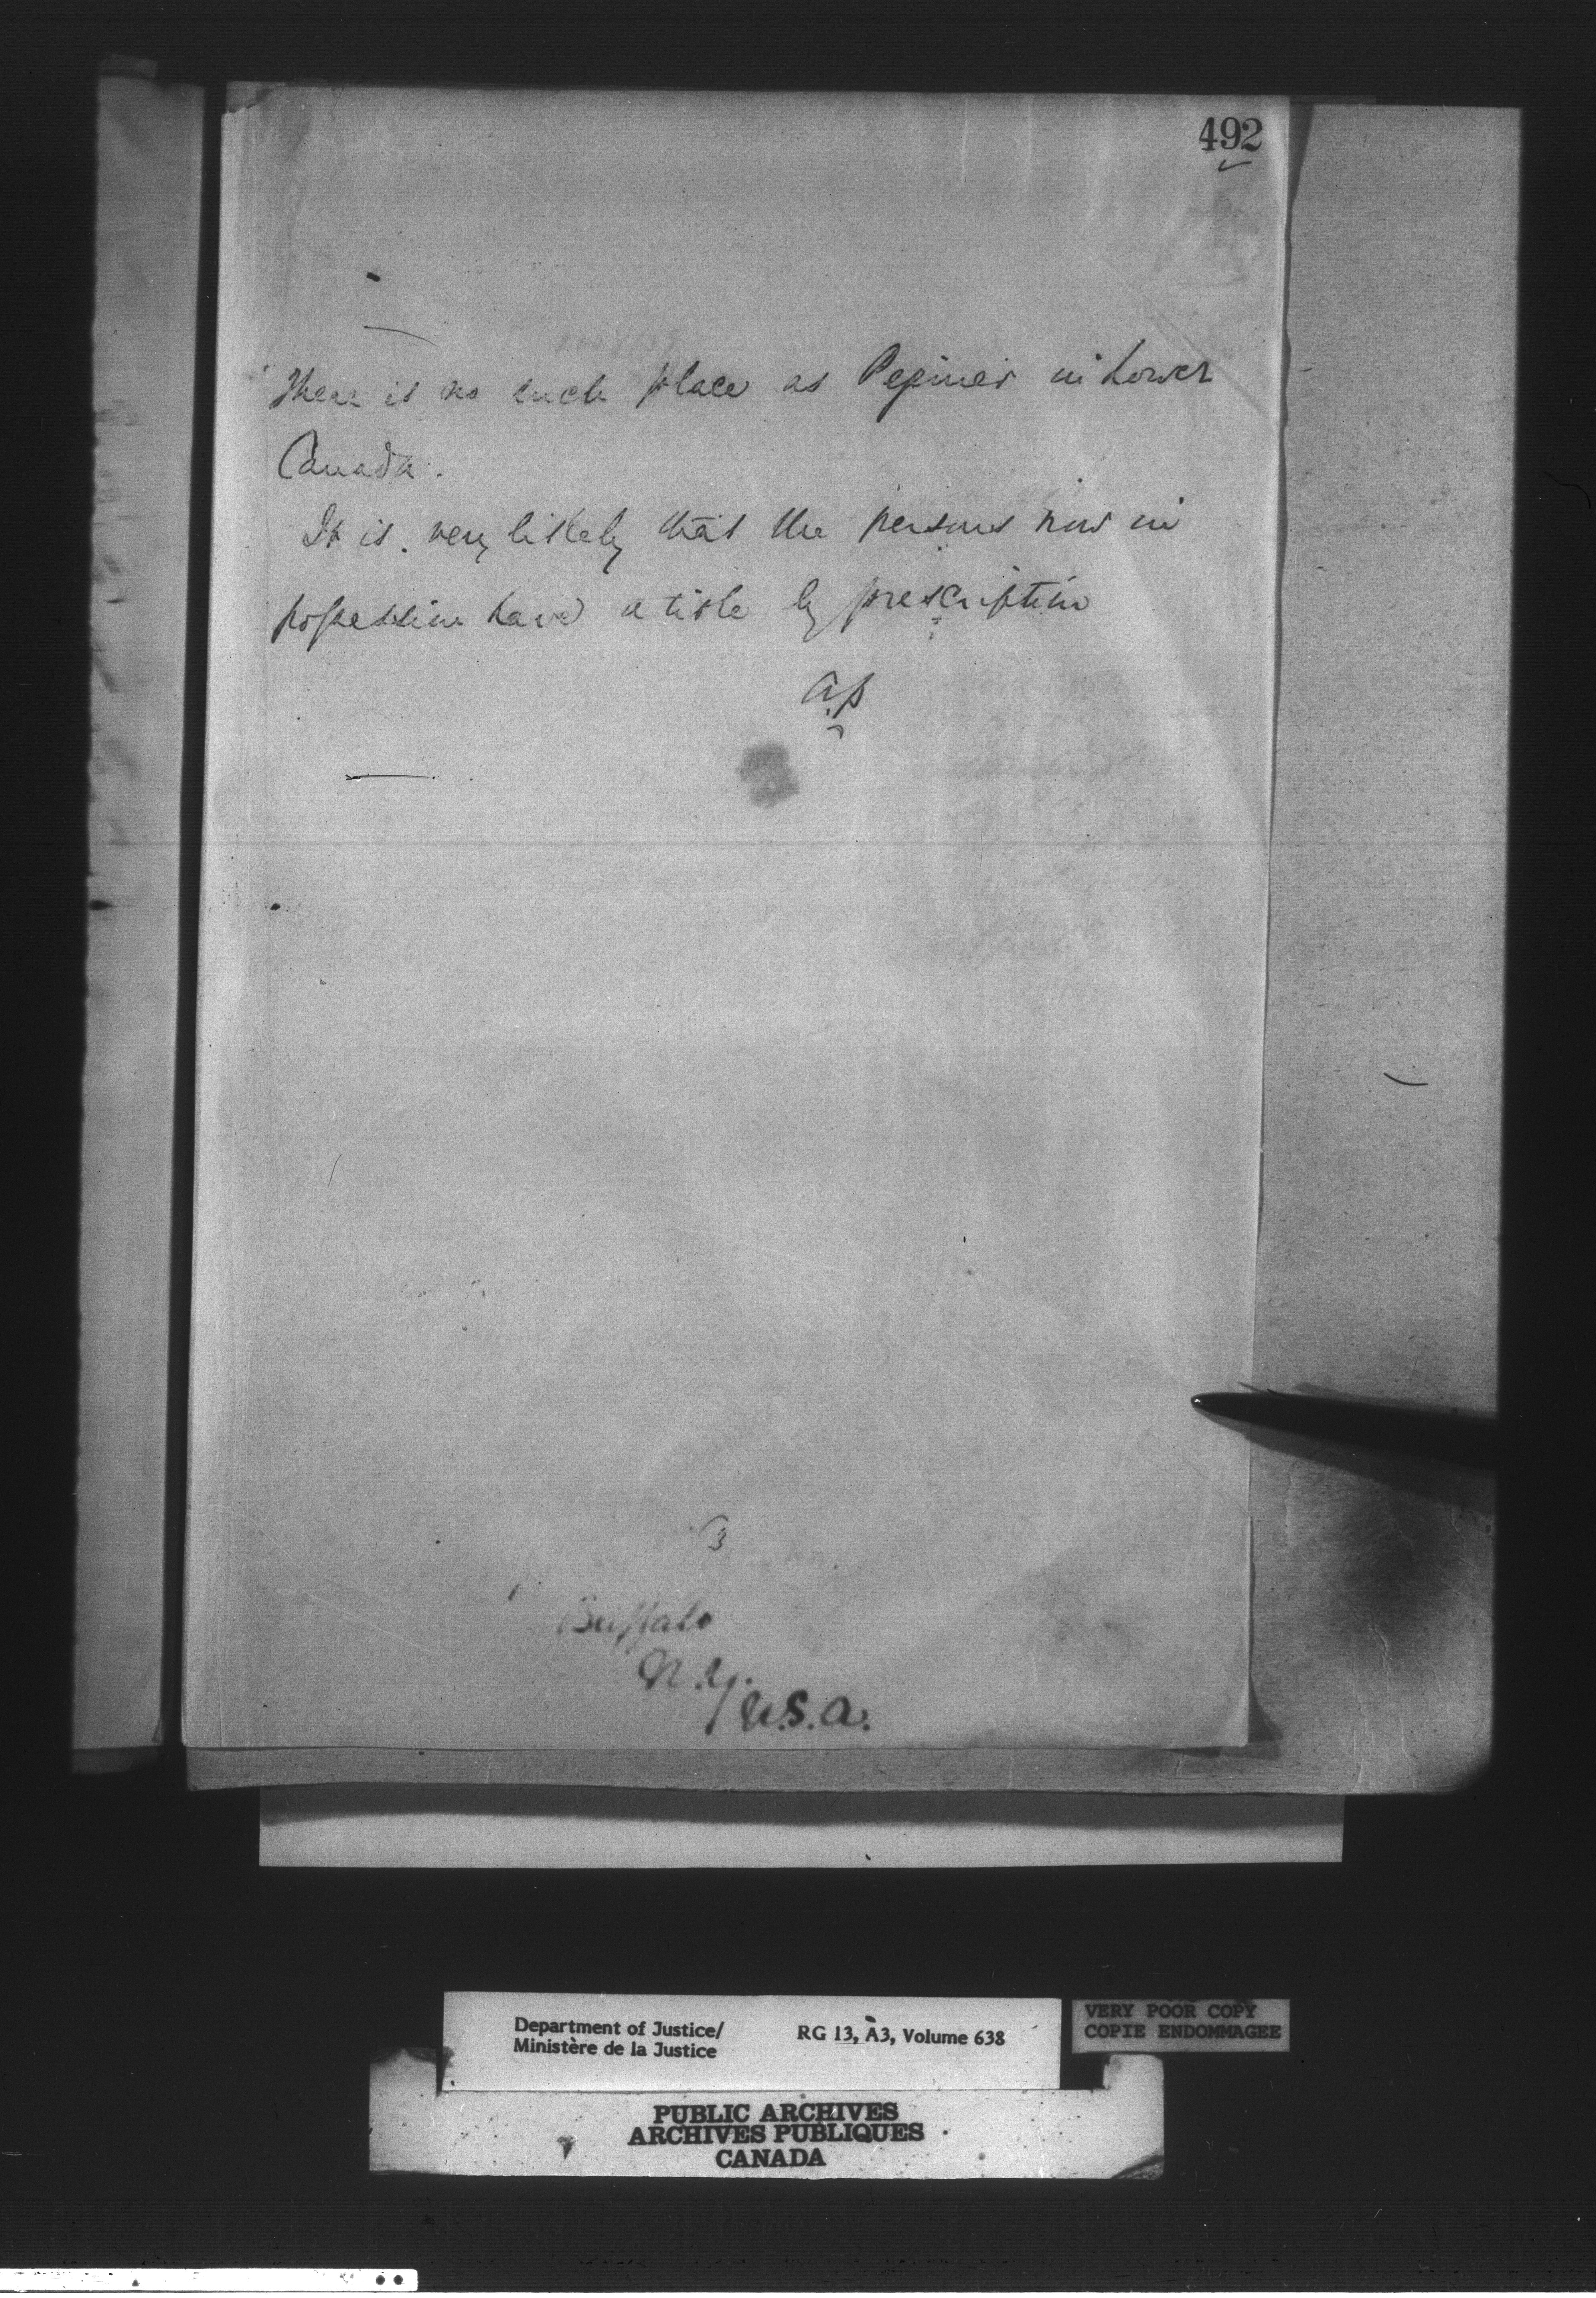 492
There is no such place as Pepinier in Lower
Canada.
It is very likely that the persons now in
possession have a title by prescription
A.P
3
Buffalo
N.Y.
U.S.A.
Department of Justice/
Ministère de la Justice
RG 13, A3, Volume 638
VERY POOR COPY
COPIE ENDOMMAGEE
PUBLIC ARCHIVES
ARCHIVES PUBLIQUES
CANADA